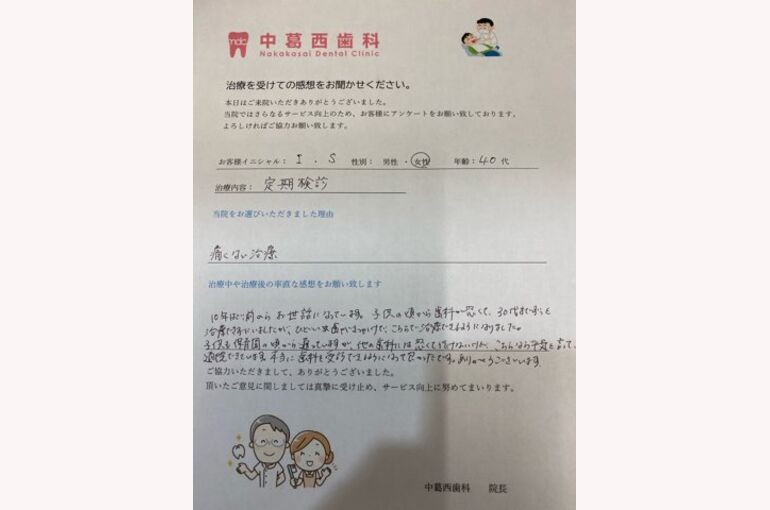 mdc
中葛西歯科
Nakakasai Dental Clinic
治療を受けての感想をお聞かせください。
本日はご来院いただきありがとうございました。
当院ではさらなるサービス向上のため、お客様にアンケートをお願い致しております。
よろしければご協力お願い致します。
お客様イニシャル： I . S 性別： 男性 ・ 女性 年齢：40 代
治療内容： 定期検診
当院をお選びいただきました理由
痛くない治療
治療中や治療後の率直な感想をお願い致します
10年ほど前からお世話になっています。子供の頃から歯科が恐くて、30代まで
治療できずにいましたが、ひどい虫歯 こちらで治療できるようになりました。
子供も保育園の頃から通っていますが、他の歯科には恐くて行けないけど、こちらなら平気と言って、
通院できています。本当に歯科を受診できるようになって良かったです。ありがとうございます。
ご協力いただきまして、ありがとうございました。
頂いたご意見に関しましては真摯に受け止め、サービス向上に努めてまいります。
中葛西歯科 院長